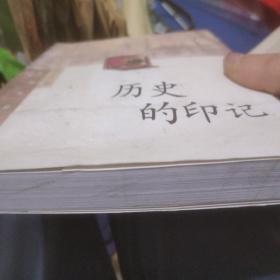 历史
的印记